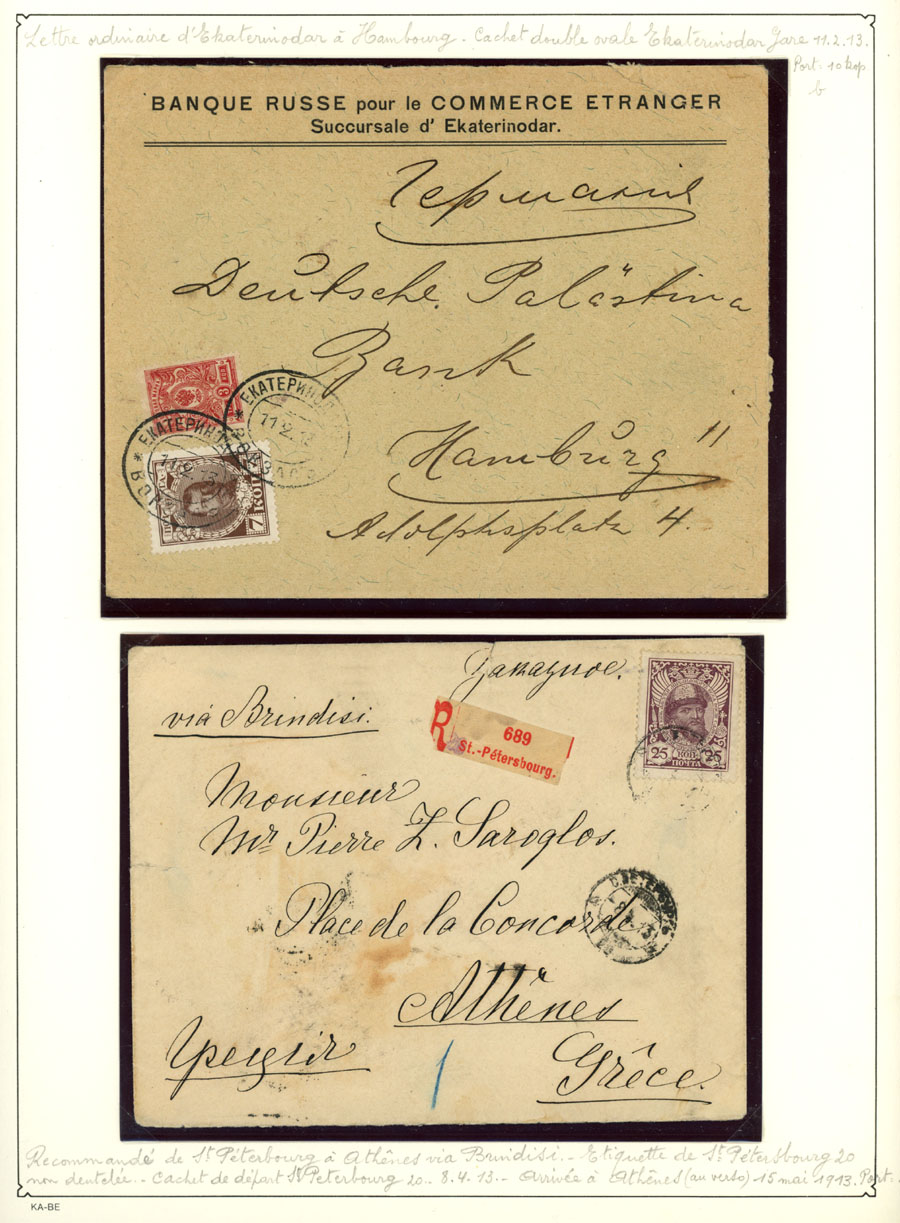 Lettre ordinaire d'Ekaterinodar à Hambourg. Cachet double ovale Ekaterinodar Gare 11.2.13.
Port. 10 kop
b
BANQUE RUSSE pour le COMMERCE ETRANGER
Succursale d' Ekaterinodar.
Германія
Deutsche Palästina
Bank
Hamburg 11
Adolphsplatz 4.
ЕКАТЕРИНОД
11.2.13
ВОКЗАЛ
ЕКАТЕРИН
7 КОП
Заказное.
via Brindisi.
R 689
St.-Pétersbourg.
25 КОП. 25
ПОЧТА
Monsieur
Mr Pierre Z. Saroglos.
Place de la Concorde
С ПЕТЕРБУРГЪ
Athênes
Греція
1
Grêce.
Recommandé de St Péterbourg à Athênes via Brindisi.- Etiquette de St Pétersbourg 20
non dentelée.- Cachet de départ St Peterbourg 20.- 8.4.13.- Arrivée à Athênes (au verso) 15 mai 1913. Port.
KA-BE